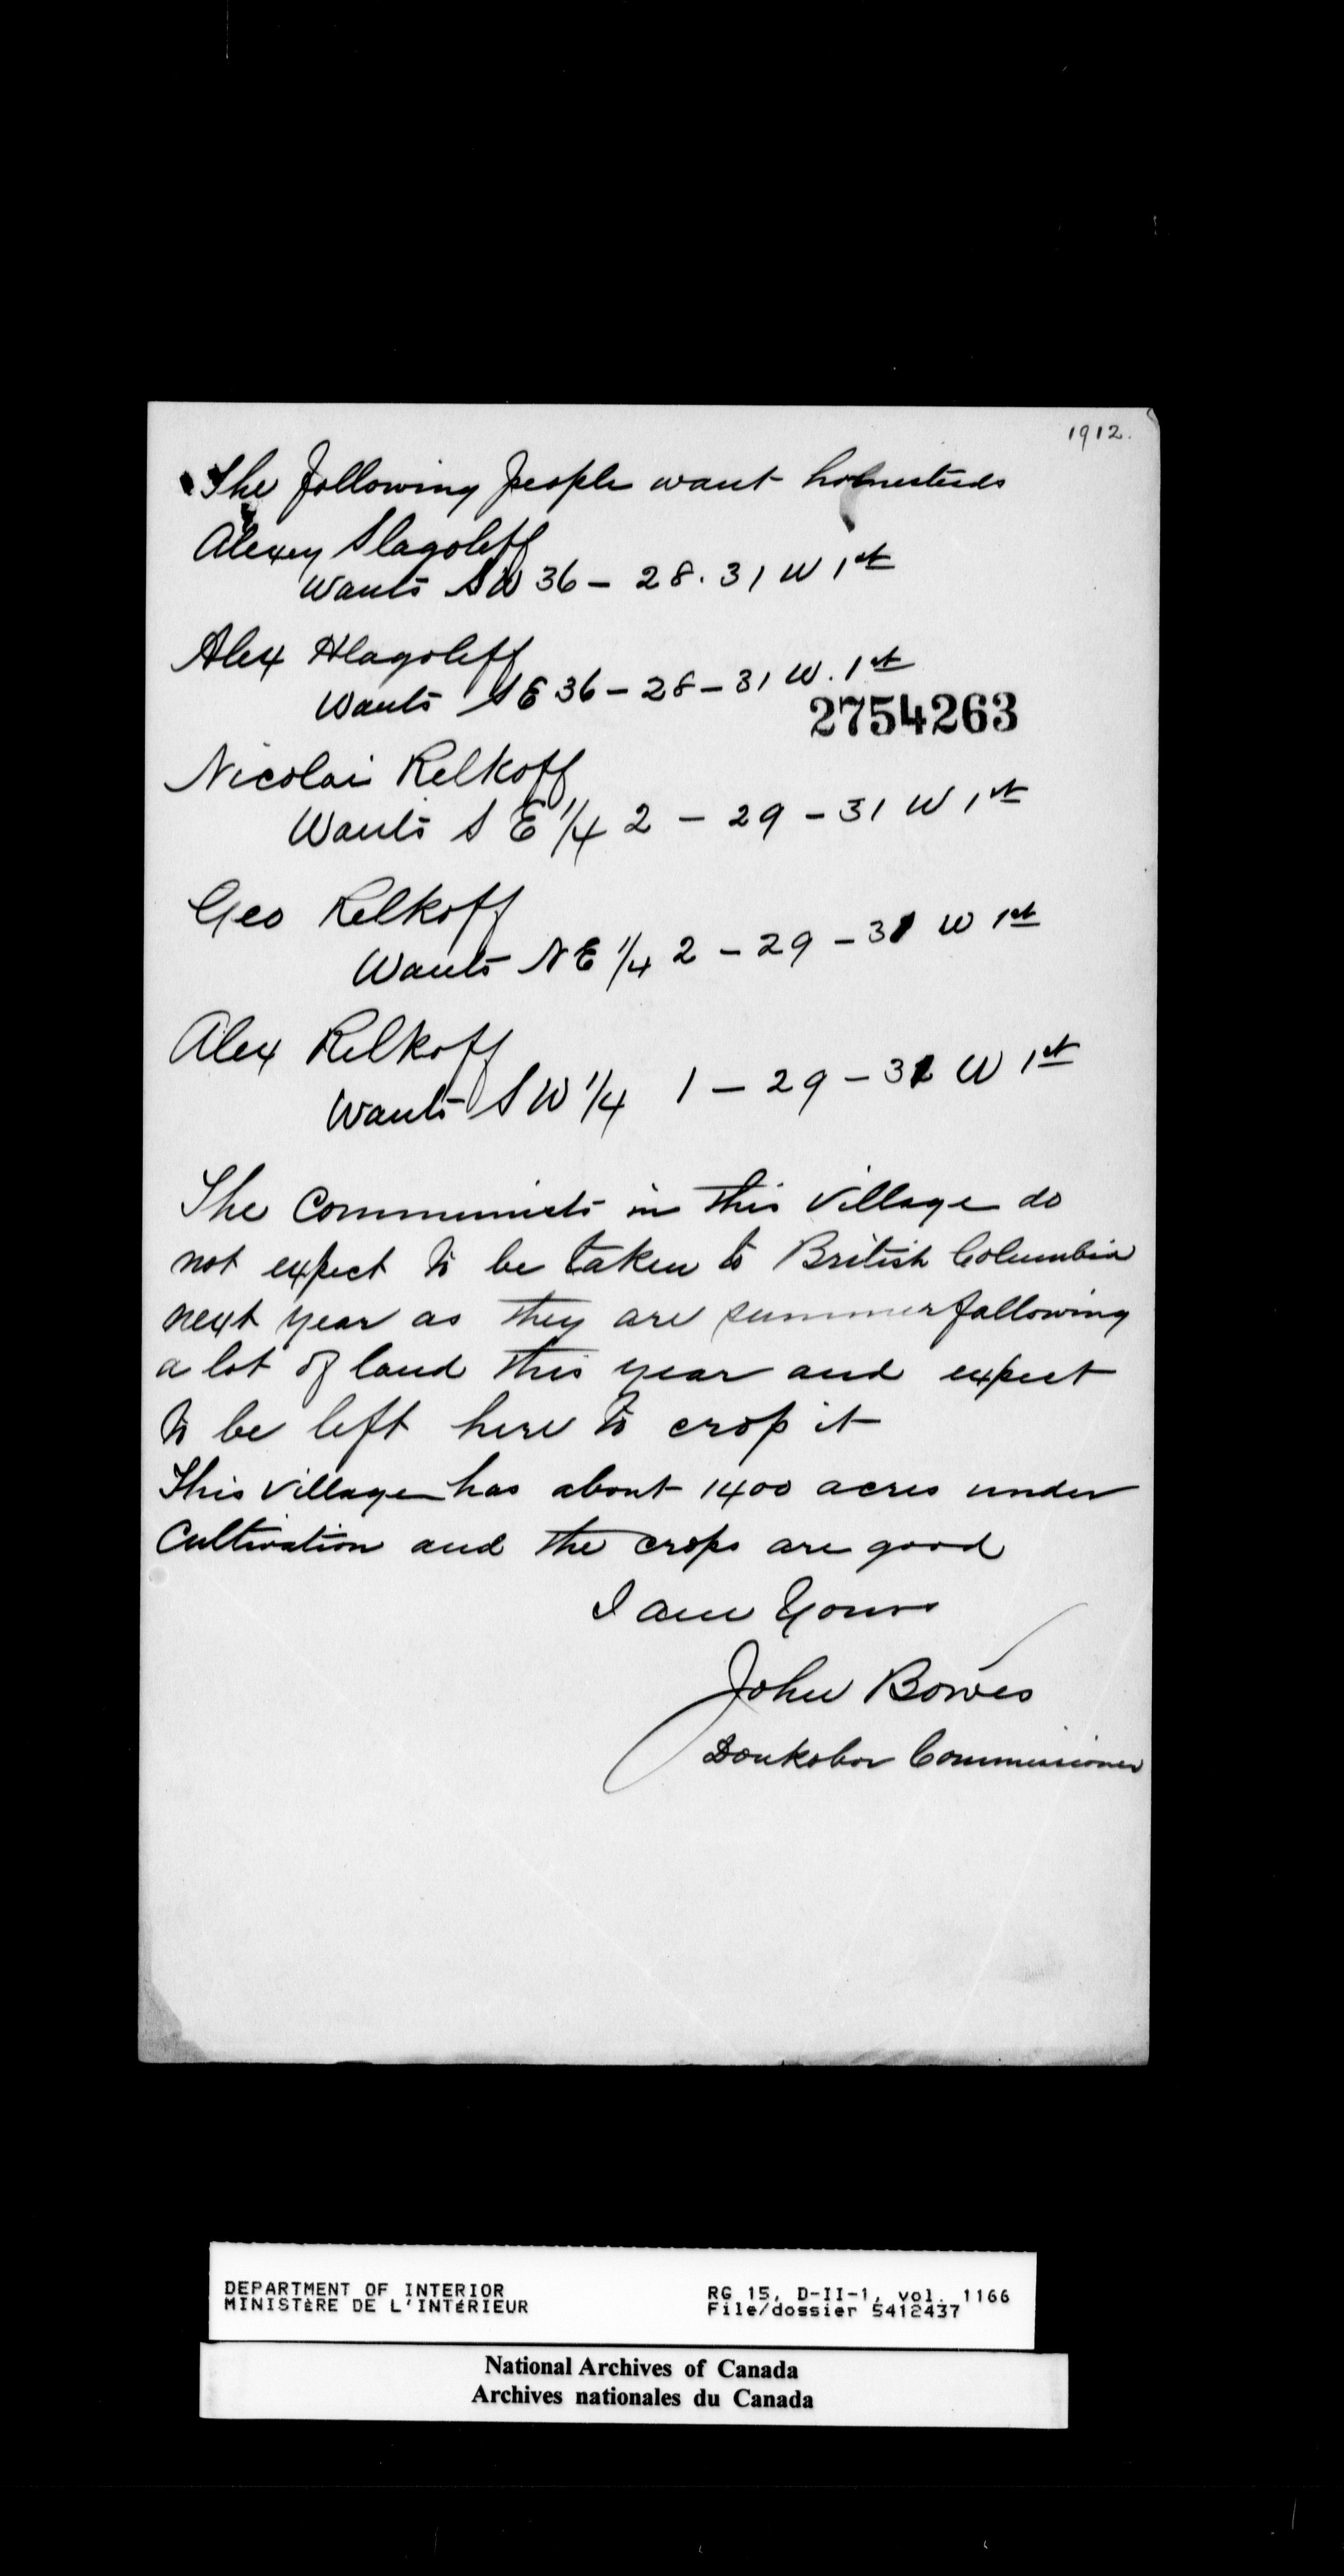 1912.
The following people want homesteads
Alexey Slagoleff
Wants SW 36 - 28. 31 W 1st
Alex Slagoleff
Wants SE 36 - 28 - 31 W. 1st
2754263
Nicolai Relkoff
Wants S E 1/4 2 - 29 - 31 W 1st
Geo Relkoff
Wants N E 1/4 2 - 29 - 31 W 1st
Alex Relkoff
Wants S W 1/4 1 - 29 - 31 W 1st
The Communists in this Village do
not expect to be taken to British Columbia
next year as they are summerfallowing
a lot of land this year and expect
to be left here to crop it
This Village has about 1400 acres under
Cultivation and the crops are good
I am Yours
John Bowes
Doukobor Commissioner
DEPARTMENT OF INTERIOR
MINISTÈRE DE L'INTÉRIEUR
RG 15, D-II-1, vol. 1166
File/dossier 5412437
National Archives of Canada
Archives nationales du Canada